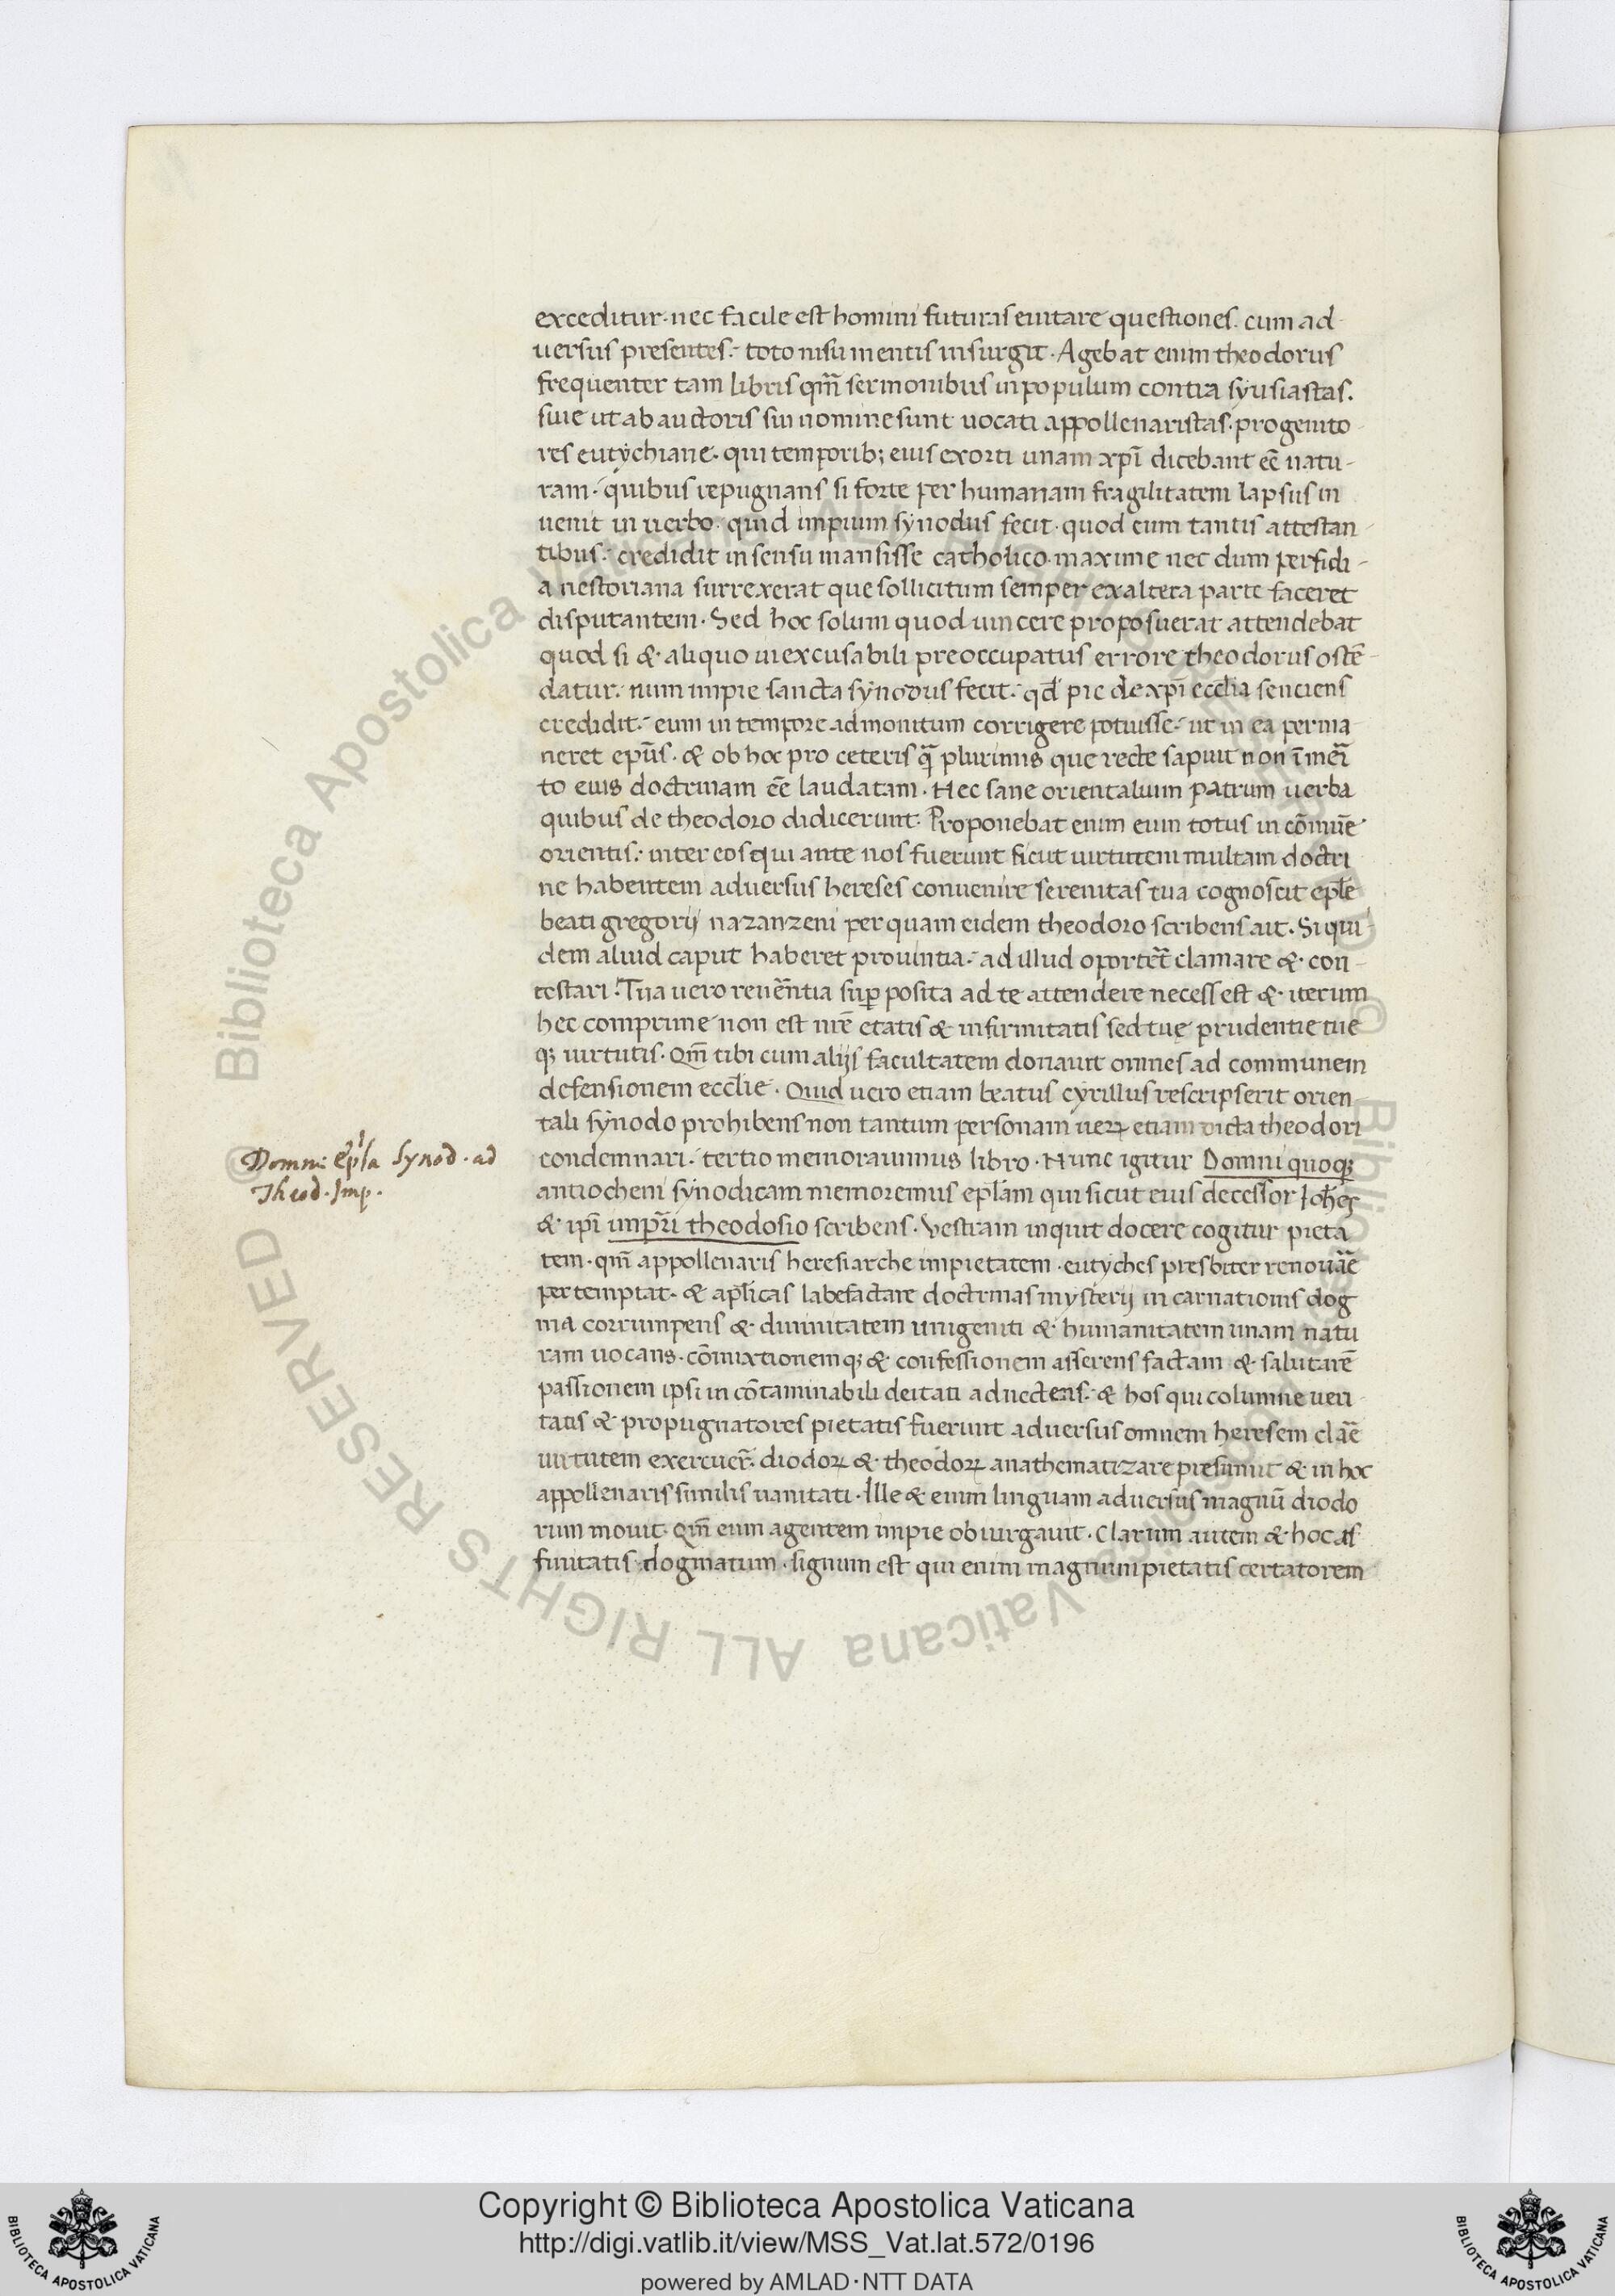 exceditur. nec facile est homini futuras euitare questiones. cum ad-
uersus presentes. toto nisu mentis insurgit. Agebat enim theodorus
frequenter tam libris qm̃ sermonibus in populum contra synusiastas.
siue ut ab auctoris sui nomine sunt uocati appollenaristas. progenito-
res eutychiane. qui temporib; eius exorti unam xpi̅ dicebant ee̅ natu-
ram. quibus repugnans si forte per humanam fragilitatem lapsus in
uenit in uerbo. quid impium synodus fecit. quod eum tantis attestan-
tibus. credidit in sensu mansisse catholico. maxime nec dum perfidi-
a nestoriana surrexerat que sollicitum semper ex altera parte faceret
disputantem. Sed hoc solum quod uincere proposuerat attendebat
quod si & aliquo inexcusabili preoccupatus errore theodorus oste̅-
datur. num impie sancta synodus fecit. qd̅ pie de xpi̅ eccl̅ia senciens
credidit. eum in tempore admonitum corrigere potuisse. ut in ea perma
neret ep̅us. & ob hoc pro ceteris q̃ plurimis que recte sapuit non i̅meri̅
to eius doctrinam ee̅ laudatam. Hec sane orientalium patrum uerba
quibus de theodoro didicerunt. Proponebat enim eum totus in co̅mune
orientis. inter eos qui ante nos fuerunt sicut uirtutem multam doctri
ne habentem aduersus hereses conuenire serenitas tua cognoscit ep̅le
beati gregorij nazanzeni per quam eidem theodoro scribens ait. Si qui-
dem aliud caput haberet prouintia. ad illud oportet̃ clamare & con-
testari. Tua uero reue̅ntia sup̱ posita ad te attendere necess est & iterum
hec comprime non est nr̅e etatis & infirmitatis sed tue prudentie tue
q; uirtutis. Qm̅ tibi cum alijs facultatem donauit omnes ad communem
defensionem eccl̅ie. Quid uero etiam beatus cyrillus rescripserit orien
tali synodo prohibens non tantum personam ueꝝ etiam dicta theodori
condemnari. tertio memorauimus libro. Nunc igitur Domni quoq;
antiocheni synodicam memoremus epl̅am qui sicut eius decessor Ioh̅es
& ip̅i imp̱r̅i theodosio scribens. Vestram inquit docere cogitur pieta
tem. qm̅ appollenaris heresiarche impietatem. eutyches presbiter renoua̅e
pertemptat. & apl̅icas labefactare doctrinas mysterij in carnationis dog
ma corrumpens & diuinitatem unigeniti & humanitatem unam natu
ram uocans. co̅mixtionemq; & confessionem asserens factam & salutare̅
passionem ipsi in co̅taminabili deitati aduectens. & hos qui columne ueri-
tatis & propugnatores pietatis fuerunt aduersus omnem heresem cla̅e
uirtutem exercuer̃. diodoꝝ & theodoꝝ anathematizare presumit & in hoc
appollenaris similis uanitati. Ille & enim linguam aduersus magnu̅ diodo
rum mouit. Qm̅ eum agentem impie obiurgauit. Clarum autem & hoc as
finitatis dogmatum. signum est qui enim magnum pietatis certatorem
Domni ep̅la synod. ad
Theod. Imp.
© Biblioteca Apostolica Vaticana ALL RIGHTS RESERVED
Copyright © Biblioteca Apostolica Vaticana
http://digi.vatlib.it/view/MSS_Vat.lat.572/0196
powered by AMLAD·NTT DATA
BIBLIOTECA APOSTOLICA VATICANA
BIBLIOTECA APOSTOLICA VATICANA